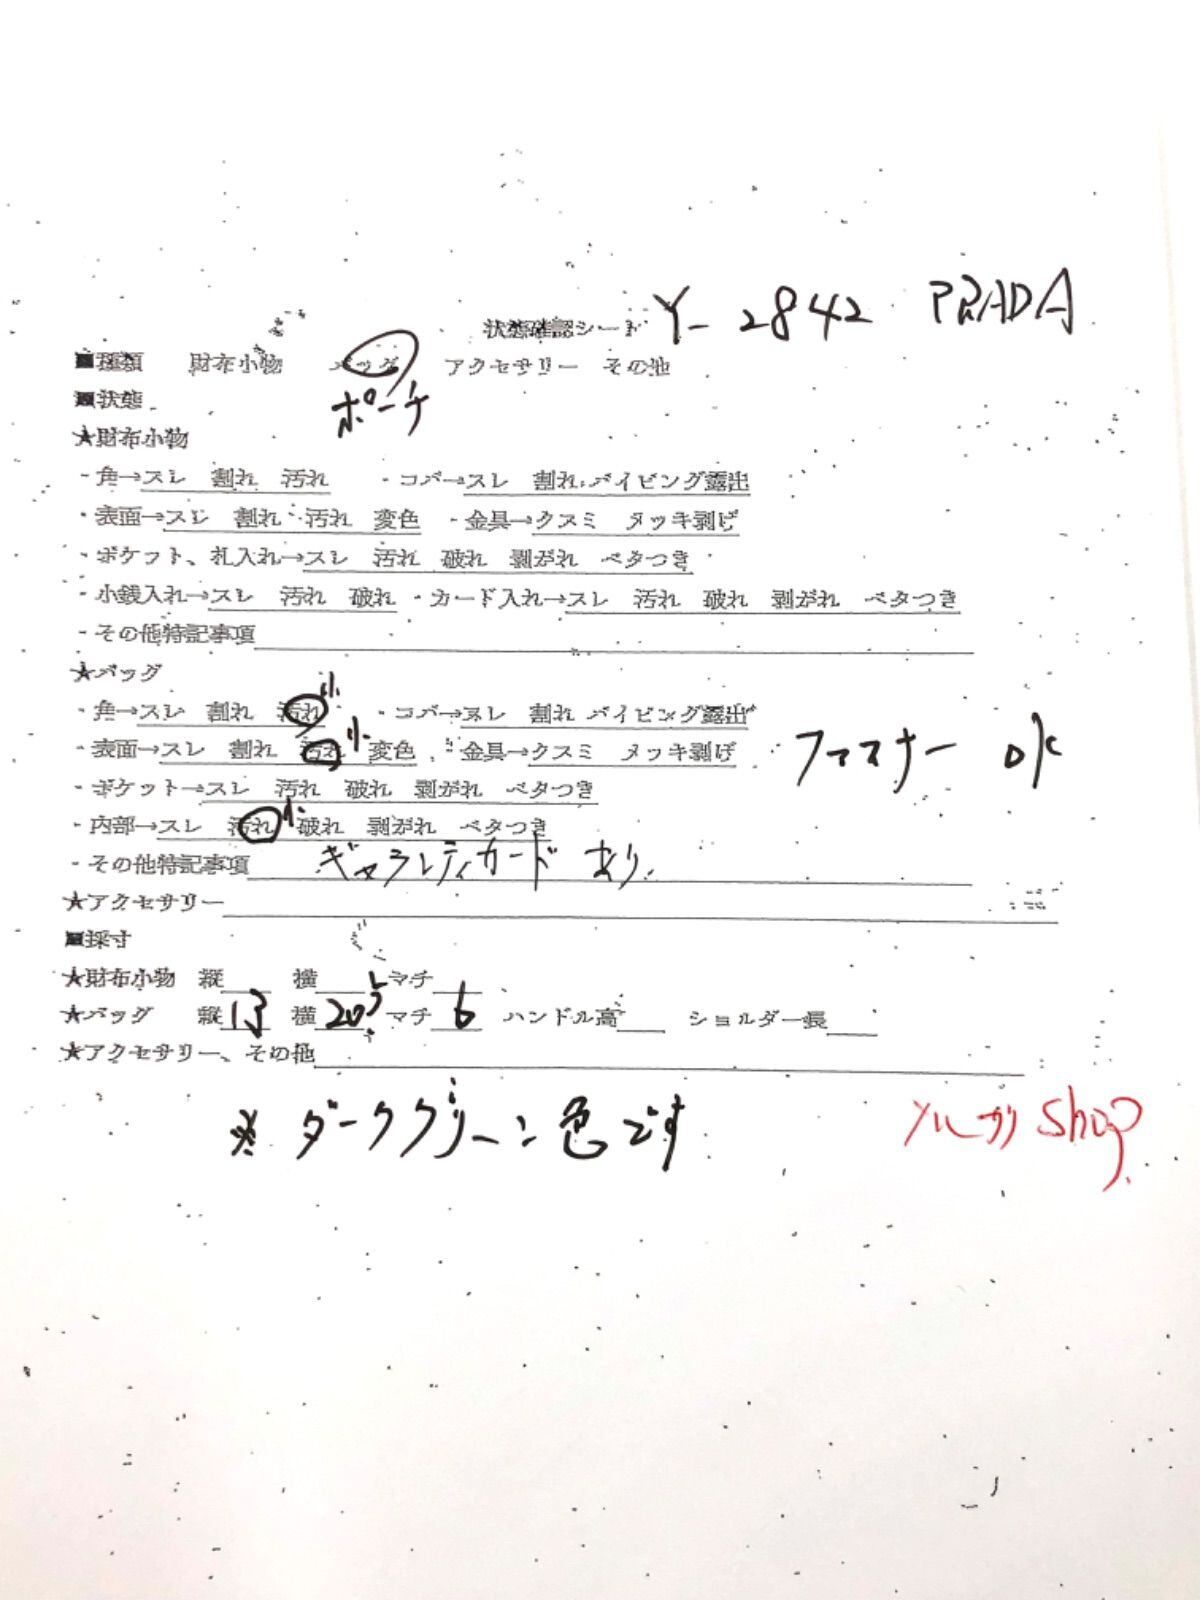 状態確認シート Y-2842 PRADA
■種類 財布小物 バッグ アクセサリー その他
■状態 ポーチ
★財布小物
・角→スレ 割れ 汚れ ・コバ→スレ 割れ パイピング露出
・表面→スレ 割れ 汚れ 変色 ・金具→クスミ メッキ剥げ
・ポケット、札入れ→スレ 汚れ 破れ 剥がれ ベタつき
・小銭入れ→スレ 汚れ 破れ ・カード入れ→スレ 汚れ 破れ 剥がれ ベタつき
・その他特記事項
★バッグ
・角→スレ 割れ 汚れ 小 ・コバ→スレ 割れ パイピング露出
・表面→スレ 割れ 汚れ 小 変色 ・金具→クスミ メッキ剥げ ファスナー OK
・ポケット→スレ 汚れ 破れ 剥がれ ベタつき
・内部→スレ 汚れ 小 破れ 剥がれ ベタつき
・その他特記事項 ギャランティカード あり.
★アクセサリー
■採寸
★財布小物 縦 横 マチ
★バッグ 縦 13 横 20.5 マチ 6 ハンドル高 ショルダー長
★アクセサリー、その他
※ ダークグリーン色です
メルカリ Shop